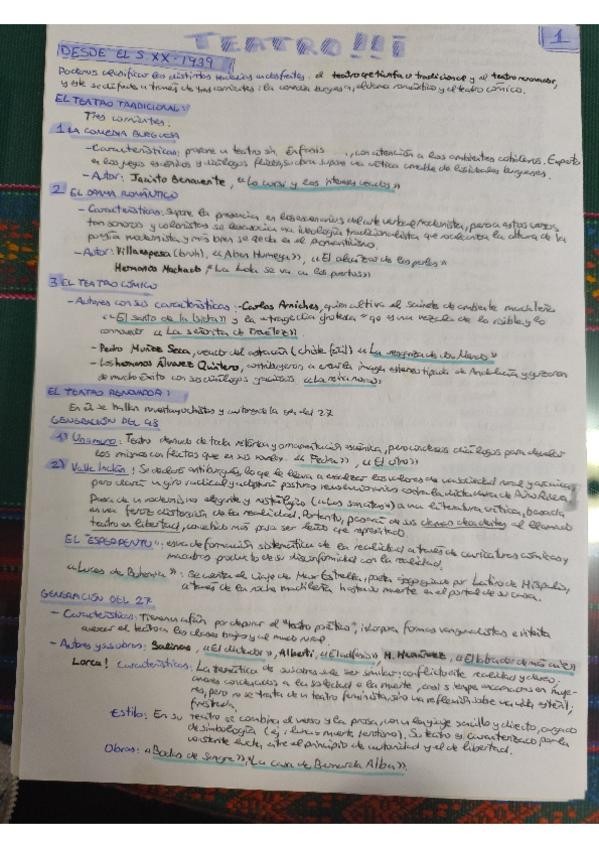 TEATRO!!!
1
DESDE EL S XX - 1939
Podemos clasificar dos distintas tendencias : el teatro o tradicional y el teatro renovador,
y este se difunde a través de tres corrientes: la comedia burguesa, el drama romántico y el teatro cómico.
EL TEATRO TRADICIONAL:
Tres corrientes:
1. LA COMEDIA BURGUESA
- Características: propone un teatro sin énfasis , con atención a los ambientes cotidianos. Experto
en los juegos escénicos y diálogos fluidos, su obra supone una crítica amable de los ideales burgueses.
- Autor: Jacinto Benavente, «Lo cursi y los intereses creados»
2. EL DRAMA ROMÁNTICO
- Características: Supone la presencia en los escenarios del arte verbal modernista, pero a estos versos
tan sonoros y coloristas se una ideología tradicionalista que no alcanza la altura de la
poesía modernista y más bien se queda en el Romanticismo.
- Autor: Villaespesa (bruh), «Aben Humeya», «El alcázar de las perlas»
Hermanos Machado, "La Lola se va a los puertos»
3 EL TEATRO CÓMICO
- Autores con sus características: - Carlos Arniches, quien cultiva el sainete de ambiente madrileño
«El santo de la Isidra» y la «tragedia grotesca» que es una mezcla de lo risible y lo
conmovedor «La señorita de Trevélez»
- Pedro Muñoz Seca, creador del astracán (chiste fácil) «La venganza de don Mendo»
- Los hermanos Álvarez Quintero, contribuyeron a crear la imagen estereotipada de Andalucía y gozaron
de mucho éxito con sus diálogos graciosos. «La reina mora»
EL TEATRO RENOVADOR:
En él se hallan noventayochistas y autores de la gen. del 27
GENERACIÓN DEL 98
1) Unamuno: Teatro desnudo de toda retórica y ornamentación escénica, pero con densos diálogos para
los mismos conflictos que en sus novelas. «Fedra», «El otro»
2) Valle Inclán: Se declara antiburgués, lo que le lleva a exaltar los valores de una sociedad rural y arcaica
pero dará un giro radical y adoptará posturas revolucionarias contra la dictadura de Primo Rivera.
Pasa de un modernismo elegante y nostálgico («Las sonatas») a una literatura crítica, basada
en una feroz distorsión de la realidad. Por tanto, pasará de sus al llamado
teatro en libertad, concebido más para ser leído que representado.
EL "ESPERPENTO": es una deformación sistemática de la realidad a través de caricaturas cómicas y
macabras producto de su disconformidad con la realidad.
«Luces de Bohemia»: Se cuenta el viaje de Max Estrella, poeta ciego guiado por Latino de Hispalis,
a través de la noche madrileña hasta su muerte en el portal de su casa.
GENERACIÓN DEL 27
- Características: Tienen un afán por depurar el "teatro poético", incorpora formas vanguardistas e intenta
acercar el teatro a las clases bajas y al mundo rural.
- Autores y sus obras: Salinas, «El dictador», Alberti, «El adefesio», M. Hernández, «El labrador de más aire»
Lorca! Características: La temática de sus obras suele ser similar: conflicto entre realidad y deseo.
amores condenados a la soledad o la muerte, casi siempre encarnados en muje-
res, pero no se trata de un teatro feminista, sino una reflexión sobre una vida estéril,
frustrada.
Estilo: En su teatro se combina el verso y la prosa, con un lenguaje sencillo y directo, cargado
de simbología (ej: luna = muerte, ). Su teatro es caracterizado por la
constante lucha entre el principio de autoridad y el de libertad.
Obras: «Bodas de Sangre», «La casa de Bernarda Alba».